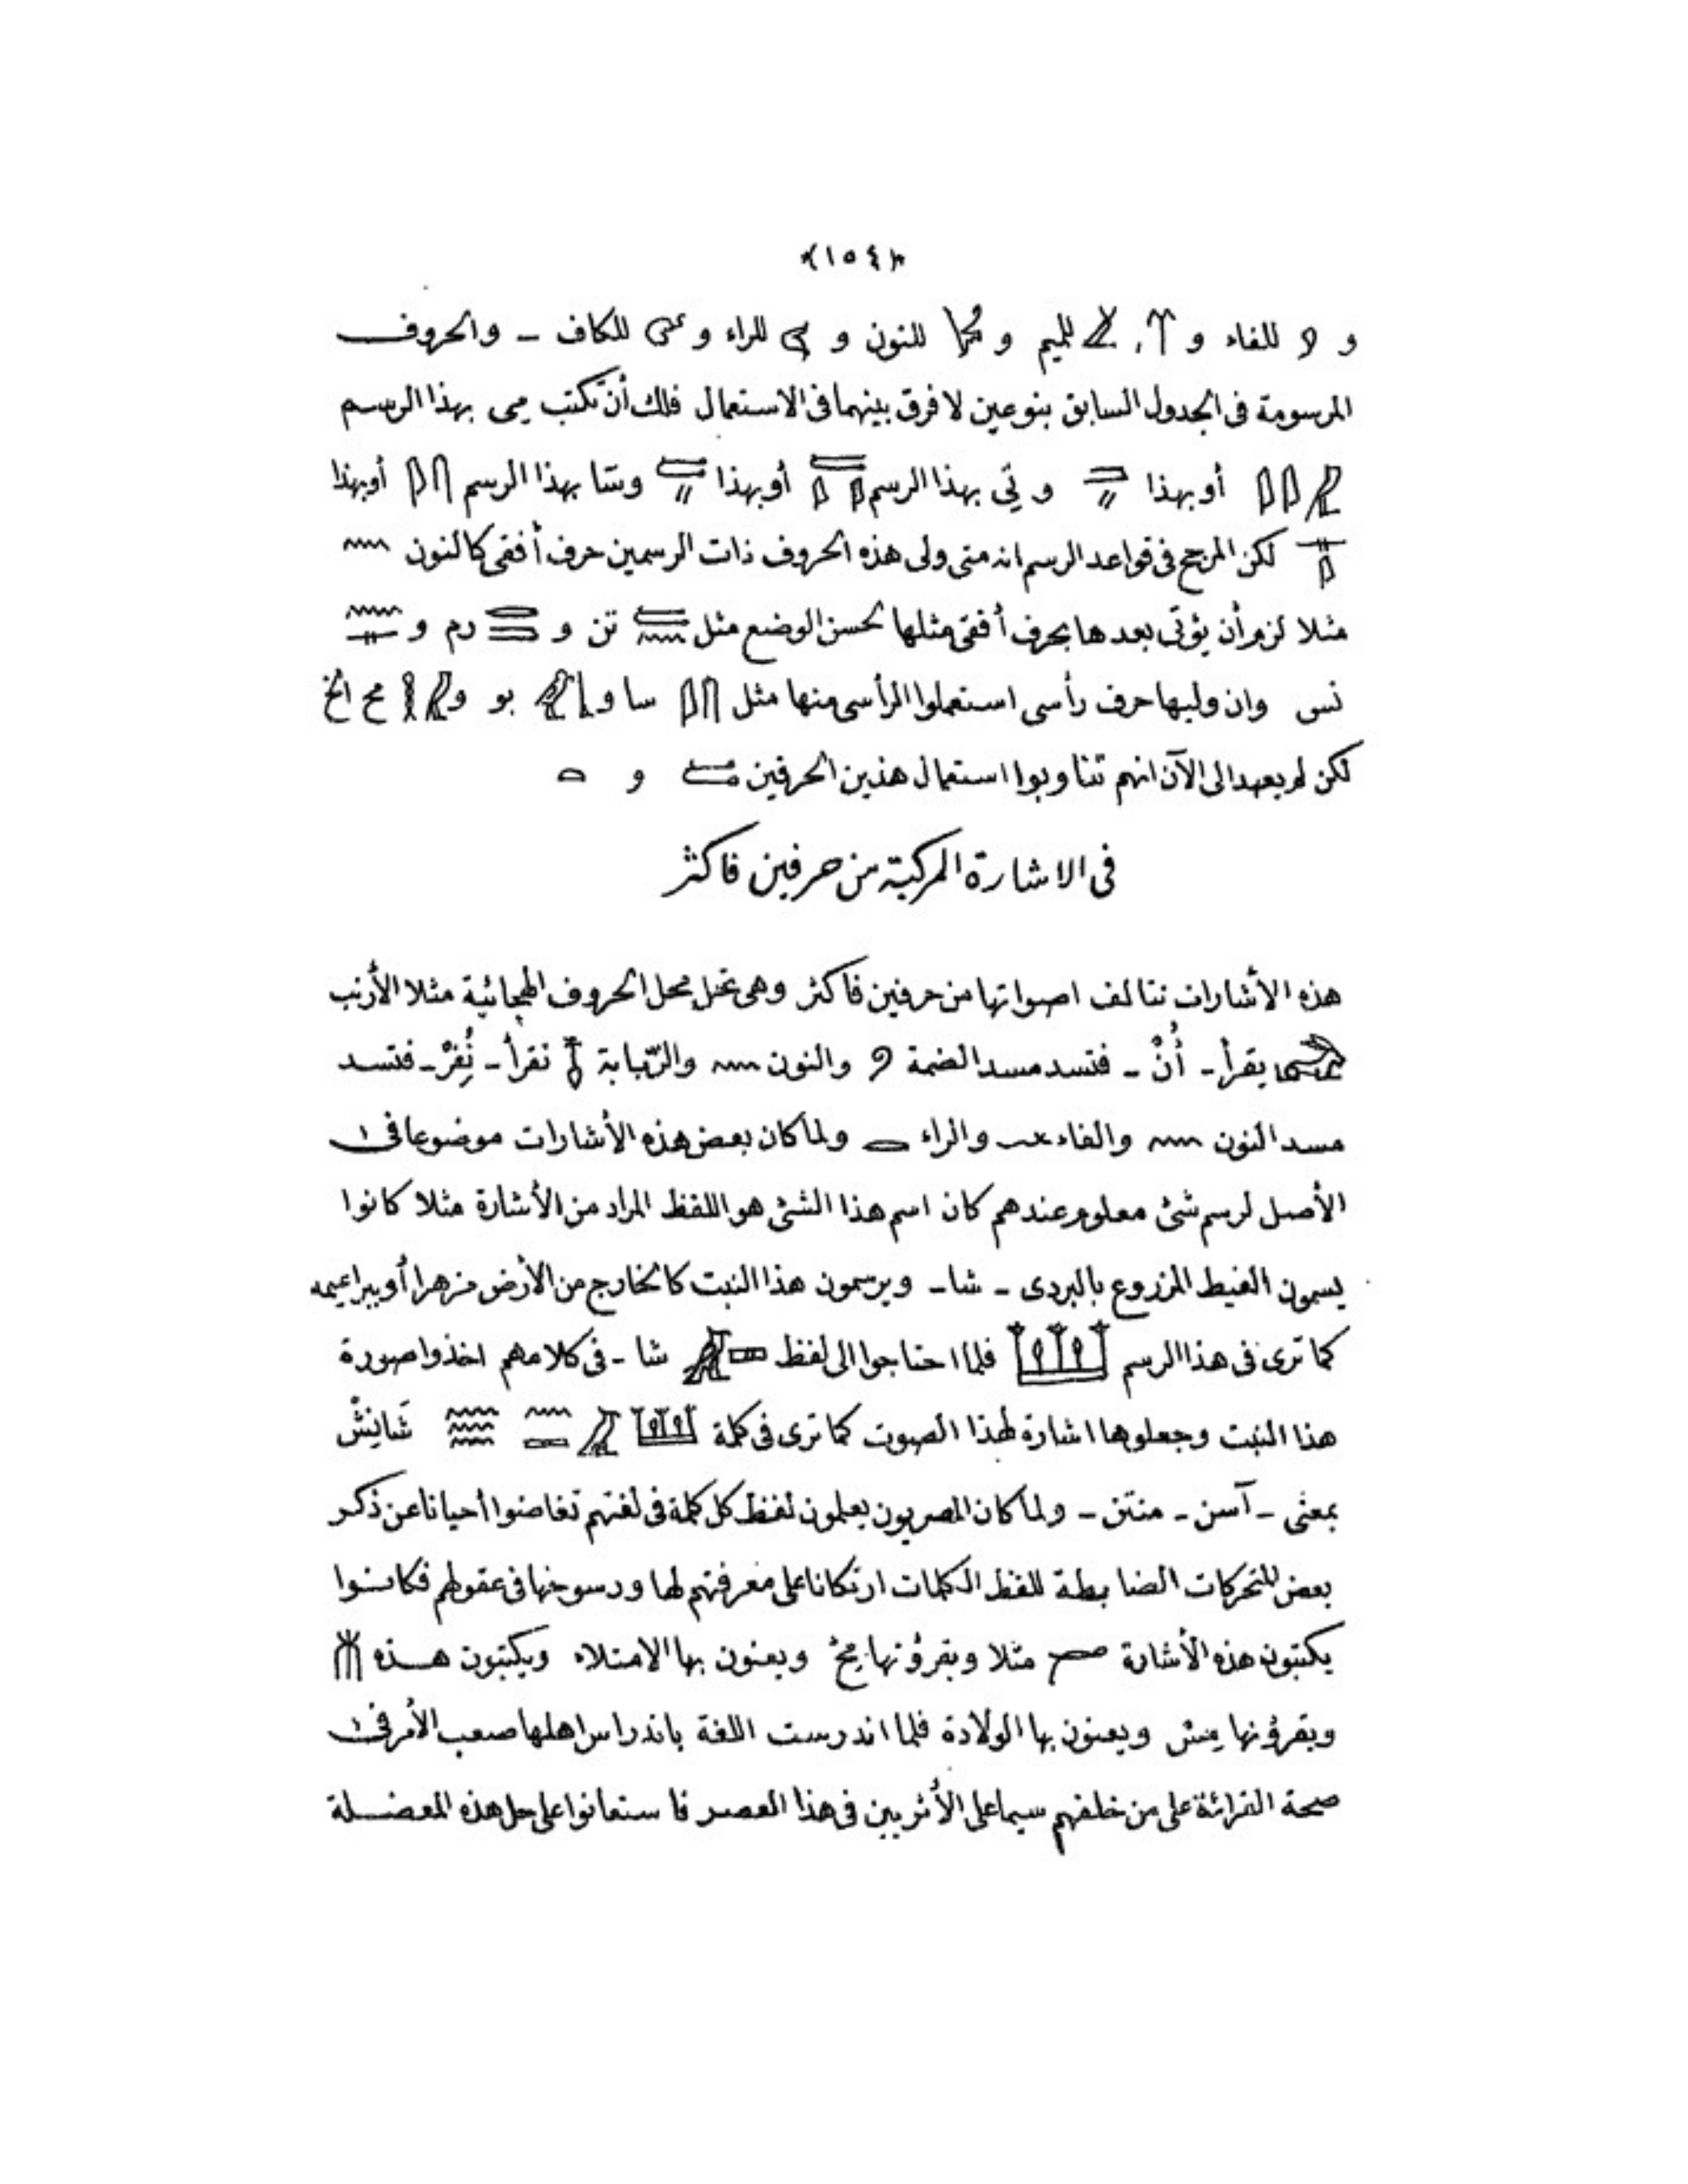 ﴿١٥٤﴾
و للفاء و للميم و للنون و للراء و للكاف ـ والحروف
المرسومة فى الجدول السابق بنوعين لا فرق بينهما فى الاستعمال فلك أن تكتب مى بهذا الرسم
𓅓𓇋𓇋 أو بهذا و تى بهذا الرسم أو بهذا وسا بهذا الرسم 𓋴𓇋 أو بهذا
𓊃𓇋 لكن المرجح فى قواعد الرسم انه متى ولى هذه الحروف ذات الرسمين حرف أفقى كالنون 𓈖
مثلا لزم أن يؤتى بعدها بحرف أفقى مثلها لحسن الوضع مثل تن و رم و 𓈖𓊃
نس وان وليها حرف رأسى استعملوا الرأسى منها مثل 𓋴𓇋 سا و 𓃀𓅱 بو و 𓅓𓎛 مح الخ
لكن لم يعهد الى الآن انهم تناوبوا استعمال هذين الحرفين و 𓏏
فى الاشارة المركبة من حرفين فاكثر
هذه الأشارات تتالف اصواتها من حرفين فاكثر وهى تحل محل الحروف الهجائية مثلا الأرنب
𓃹 يقرأ ـ أُنْ ـ فتسد مسد الضمة 𓏲 والنون 𓈖 والرّبابة 𓄤 تقرأ ـ نُفِرْ ـ فتسد
مسد النون 𓈖 والفاء 𓆑 والراء 𓂋 ولما كان بعض هذه الأشارات موضوعا فى
الأصل لرسم شئ معلوم عندهم كان اسم هذا الشئ هو اللفظ المراد من الأشارة مثلا كانوا
يسمون الغيط المزروع بالبردى ـ شا ـ ويرسمون هذا النبت كالخارج من الأرض مزهرا أو ببراعيمه
كما ترى فى هذا الرسم 𓆷 فلما احتاجوا الى لفظ 𓈙𓄿 شا ـ فى كلامهم اخذوا صورة
هذا النبت وجعلوها اشارة لهذا الصوت كما ترى فى كلمة 𓆷𓄿𓈖𓈙𓈗 شَانِشْ
بمعنى ـ آسن ـ منتن ـ ولما كان المصريون يعلمون لفظ كل كلمة فى لغتهم تغاضوا أحيانا عن ذكر
بعض المتحركات الضابطة للفظ الكلمات ارتكانا على معرفتهم لها ورسوخها فى عقولهم فكانوا
يكتبون هذه الأشارة مثلا ويقرؤنها مح ويعنون بها الامتلاء ويكتبون هذه 𓄟𓋴
ويقرؤنها مس ويعنون بها الولادة فلما اندرست اللغة باندراس اهلها صعب الأمر فى
صحة القرائة على من خلفهم سيما على الأثريين فى هذا العصر فاستعانوا على حل هذه المعضلة